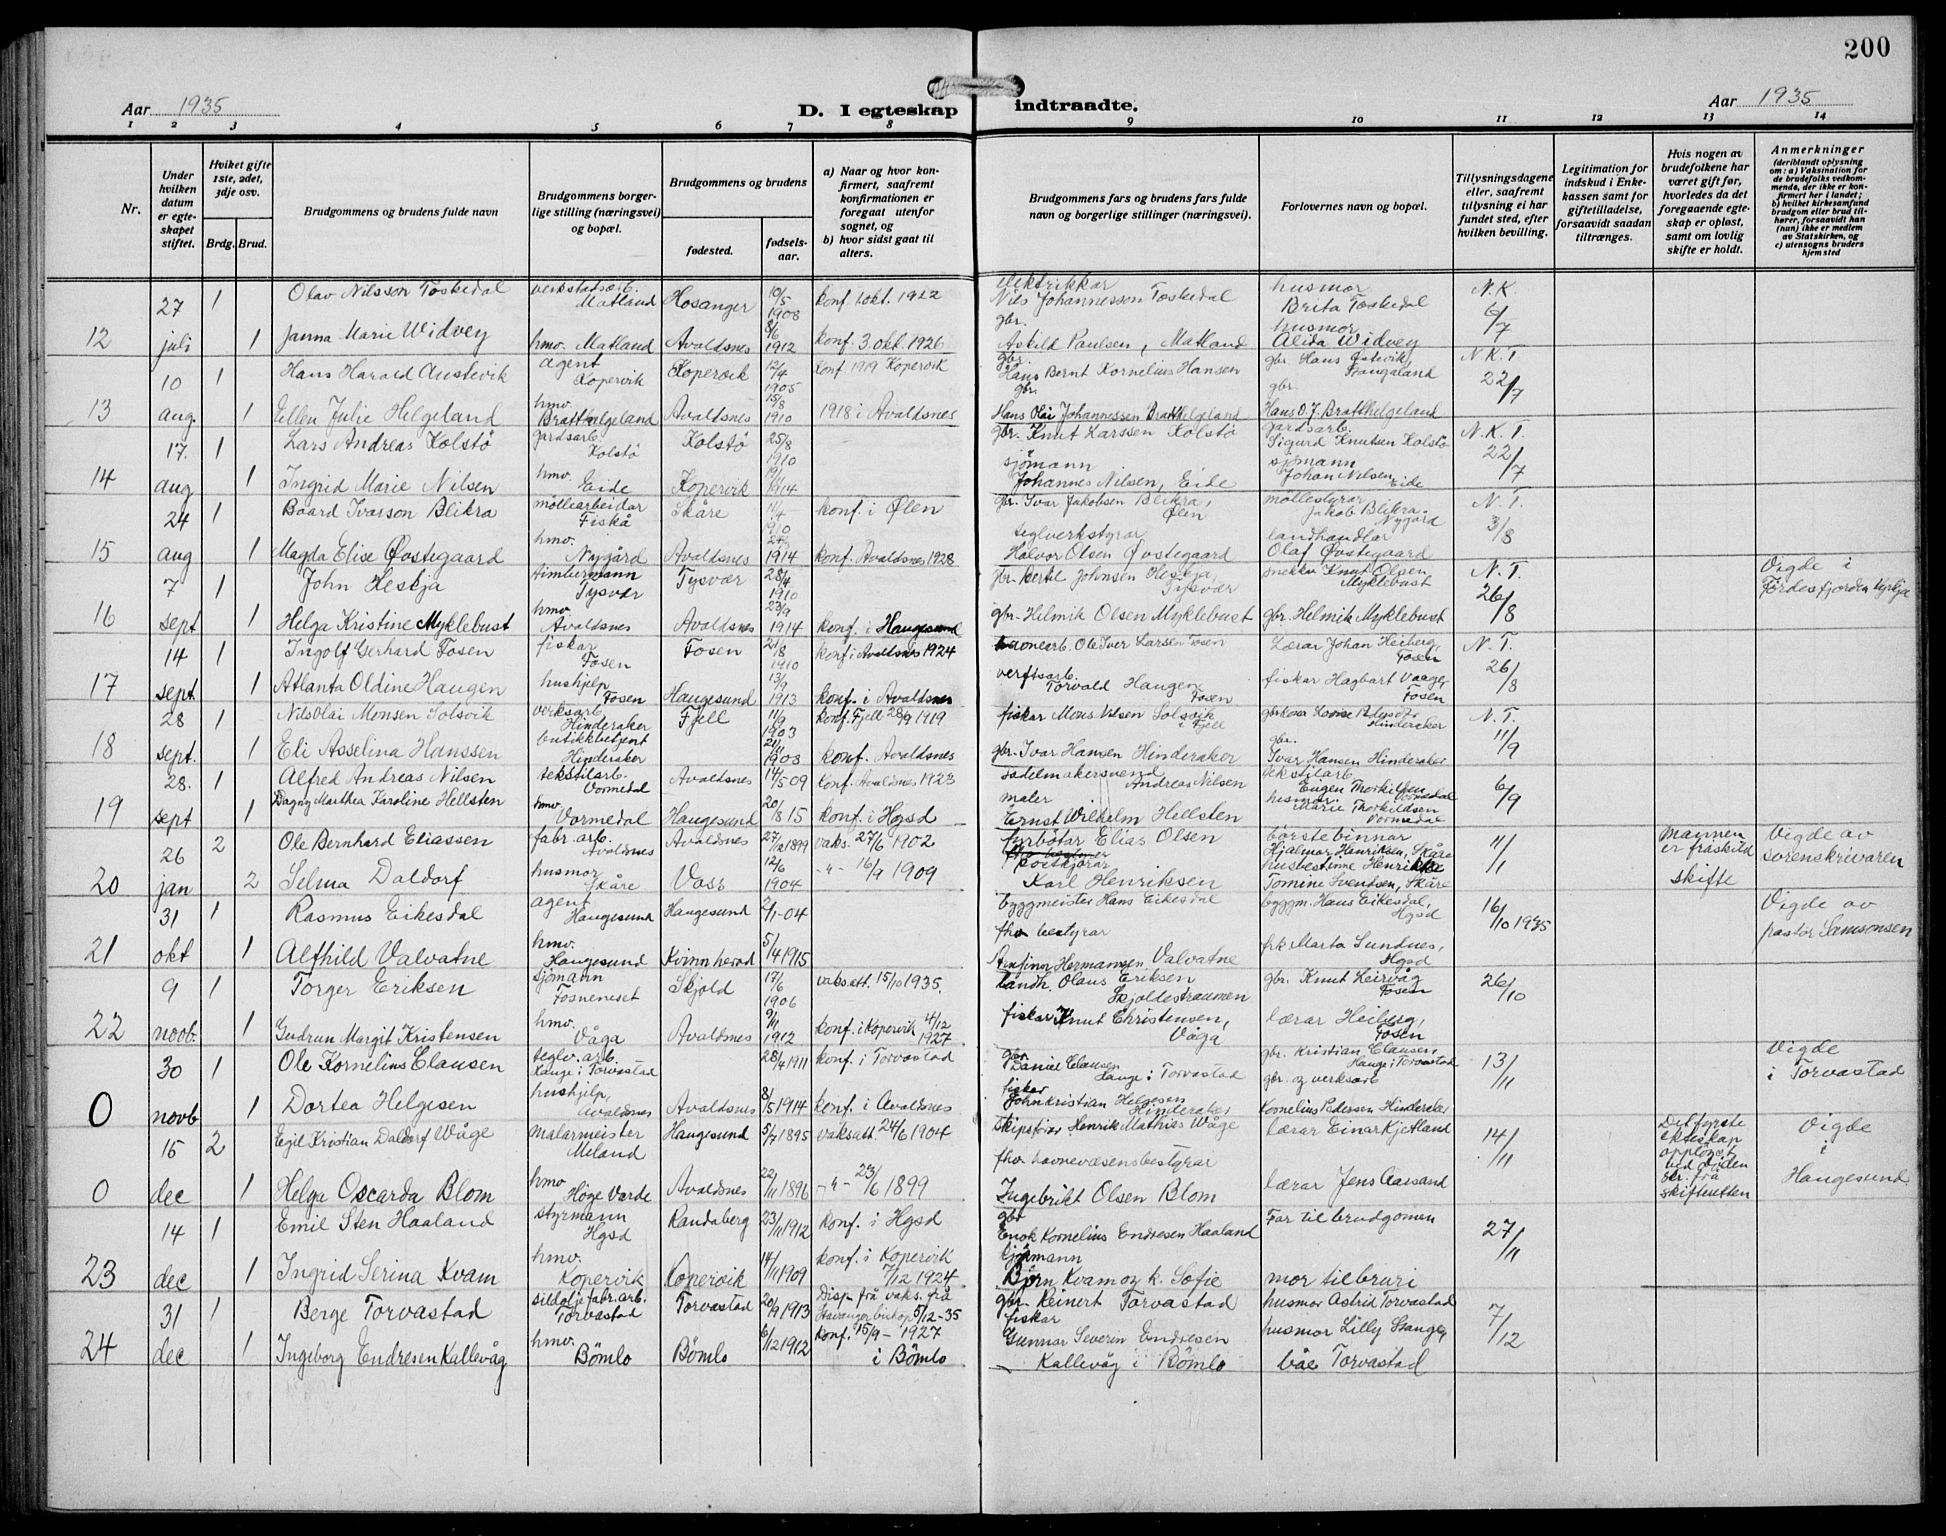 200
Aar 1935
D. I egteskap indtraadte.
Aar 1935
1 2 3 4 5 6 7 8 9 10 11 12 13 14
Nr.
Under hvilken datum er egteskapet stiftet.
Hviket gifte 1ste, 2det, 3dje osv.
Brdg. Brud.
Brudgommens og brudens fulde navn
Brudgommens borgerlige stilling (næringsvei) og bopæl.
Brudgommens og brudens
fødested.
fødsels-aar.
a) Naar og hvor konfirmert, saafremt konfirmationen er foregaat utenfor sognet, og
b) hvor sidst gaat til alters.
Brudgommens fars og brudens fars fulde navn og borgerlige stillinger (næringsvei).
Forlovernes navn og bopæl.
Tillysningsdagene eller, saafremt tillysning ei har fundet sted, efter hvilken bevilling.
Legitimation for indskud i Enkekassen samt for giftetilladelse, forsaavidt saadan tiltrænges.
Hvis nogen av brudefolkene har været gift før, hvorledes da det foregaaende egteskap er opløst, samt om lovlig skifte er holdt.
Anmerkninger
(deriblandt oplysning om: a) Vaksination for de brudefolks vedkommende, der ikke er konfirmert her i landet; b) hvilket kirkesamfund brudgom eller brud tilhører, forsaavidt han (hun) ikke er medlem av Statskirken, og c) utensogns bruders hjemsted
27 1 Olav Nilsson Toskedal verkstadarb. Matland Hosanger 10/5 1908 konf. 1 okt. 1922 elektrikkar Nils Johannesson Toskedal husmor Brita Toskedal N.K.
12 juli 1 Janna Marie Widvey hmv. Matland Avaldsnes 8/6 1912 konf. 3. okt. 1926 gbr. Askild Paulsen, Matland husmor Alida Widvey 6/7
10 1 Hans Harald Austevik agent Kopervik Kopervik 12/4 1905 konf 1919 Kopervik gbr. Hans Bernt Kornelius Hansen gbr. Hans Østevik, Stangaland N.K.T.
13 aug. 1 Ellen Julie Helgeland hmv. Bratthelgeland Avaldsnes 15/8 1910 1918 i Avaldsnes gbr. Hans Olai Johannessen Bratthelgeland gbr. Hans O. J. Bratthelgeland 22/7
17. 1 Lars Andreas Kolstø gardsarb. Kolstø Kolstø 25/8 1910 gbr. Knut Larssen Kolstø gardsarb. Sigurd Knutsen Kolstø N.K.T.
14 aug 1 Ingrid Marie Nilsen hmv. Eide Kopervik 19/11 1914 sjømann Johannes Nilsen, Eide sjømann Johan Nilsen Eide 22/7
24 1 Baard Ivarson Blikra møllearbeidar Fiskå Skåre 11/4 1910 konf. i Ølen gbr. Ivar Jakobsen Blikra, Ølen møllestyrar Jakob Blikra Nygård N.T.
15 aug 1 Magda Elise Øvstegaard hmv. Nygård Avaldsnes 1914 konf. Avaldsnes 1928 teglverkstyrar Halvor Olsen Øvstegaard landhandlar Olaf Øvstegaard 3/8
7 1 John Heskja timbermann Tysvær Tysvær 28/4 1910 gbr. Bertil Johnsen Heskja, Tysvær snekkar Knut Olsen Myklebust N.T. Vigde i Førdesfjorden kyrkja
16 sept 1 Helga Kristine Myklebust hmv. Avaldsnes Avaldsnes 23/9 1914 konf. i Haugesund gbr. Helmik Olsen Myklebust gbr. Helmik Myklebust 26/8
14 1 Ingolf Gerhard Fosen fiskar Fosen Fosen 21/8 1910 konf. i Avaldsnes 1924 havnearb. Ole Iver Larsen Fosen Lærar Johan Heiberg, Fosen N.T.
17 sept. 1 Atlanta Oldine Haugen hushjelp Fosen Haugesund 13/9 1913 konf. i Avaldsnes verftsarb. Torvald Haugen Fosen fiskar Hagbart Vaage, Fosen 26/8
28 1 Nils Olai Monsen Solsvik verksarb. Hinderaker Fjell 11/9 1903 konf. Fjell 28/9 1919 fiskar Mons Nilsen Solsvik i Fjell Hinderaker N.T.
18 sept. 1 Eli Asselina Hanssen butikkbetjent Hinderaker 21/11 1903 konf. Avaldsnes gbr. Ivar Hansen Hinderaker gbr. Ivar Hansen Hinderaker 11/9
28. 1 Alfred Andreas Nilsen tekstilarb. Vormedal Avaldsnes 14/5 09 konf. Avaldsnes 1923 sadelmakersvend Andreas Nilsen tekstilarb. Eugen Thorkildsen Vormedal
19 sept 1 Dagny Marthea Karoline Hellsten hmv. Vormedal Haugesund 20/8 15 konf. i Hgsd maler Ernst Wilhelm Hellsten husmor Marie Thorkildsen Vormedal 6/9
26 2 Ole Bernhard Eliassen fabr. arb. Avaldsnes Avaldsnes 27/12 1899 vaks. 27/6 1902 fyrbøtar Elias Olsen børstebinnar Hjalmar Henriksen, Skåre 11/1 Mannen er fraskild Vigde av sorenskrivaren
20 jan 2 Selma Daldorf husmor Skåre Voss 12/6 1904 -"- 16/9 1909 postkjørar Karl Henriksen husbestinne Henrikke Tomine Svendsen, Skåre skifte
31 1 Rasmus Eikesdal agent Haugesund Haugesund 2/1-04 byggmeister Hans Eikesdal byggm. Hans Eikesdal, Hgsd 16/10 1935 Vigde av pastor Samsonsen
21 okt 1 Alfhild Valvatne hmv. Haugesund Kvinnherad 5/4 1915 fhv. bestyrar Arnfinn Hermansen Valvatne frk Marta Sundnes, Hgsd
9 1 Torger Eriksen sjømann Fosneneset Skjold 17/6 1906 vaks.att. 15/10 1935. landh. Olaus Eriksen Skjoldestraumen gbr. Knut Leirvåg Fosen 26/10
22 novb. 1 Gudrun Margit Kristensen hmv. Våga Avaldsnes 9/11 1912 konf. i Kopervik 4/12 1927 fiskar Knut Christensen, Våga lærar Heiberg, Fosen
30 1 Ole Kornelius Clausen teglv. arb. Hauge i Torvastad 28/4 1911 konf. i Torvastad gbr Daniel Clausen Hauge i Torvastad gbr. Kristian Clausen, Hauge i Torvastad 13/11 Vigde i Torvastad
0 novb 1 Dortea Helgesen hushjelp, Avaldsnes Avaldsnes 8/5 1914 konf. i Avaldsnes fiskar John Kristian Helgesen Hinderaker gbr. og verksarb Kornelius Pedersen Hinderaker
15 2 Egil Kristian Daldorf Wåge malarmeister Meland Haugesund 5/7 1895 vaksatt. 24/6 1904 skipsfører Henrik Mathias Wåge lærar Einar Kjetland 14/11 Det fyrste ekteskap oppløyst ved døden ber. frå skifteretten Vigde i Haugesund
0 dec 1 Helga Oscarda Blom hmv Høge Varde Avaldsnes 22/11 1896 -"- 23/6 1899 fhv. havnevæsensbestyrar Ingebrikt Olsen Blom lærar Jens Aarsand
14 1 Emil Sten Haaland styrmann Hgsd Randaberg 23/11 1912 konf. i Hgsd gbr Enok Kornelius Endresen Haaland Far til brudgomen 27/11
23 dec 1 Ingrid Serina Kvam hmv. Kopervik Kopervik 14/11 1909 konf. i Kopervik 7/12 1924 sjømann Bjørn Kvam og k. Sofie mor til bruri
31 1 Berge Torvastad sildoljefabr. arb. Torvastad Torvastad 20/9 1913 Disp. frå vaks. frå Stavanger biskop 5/12-35 gbr. Reinert Torvastad husmor Astrid Torvastad 7/12
24 dec 1 Ingeborg Endresen Kallevåg hmv. Bömlo Bömlo 6/12 1912 konf. 15/9 - 1927 i Bömlo fiskar Gunnar Severin Endresen Kallevåg i Bömlo husmor Lilly Stange, Torvastad